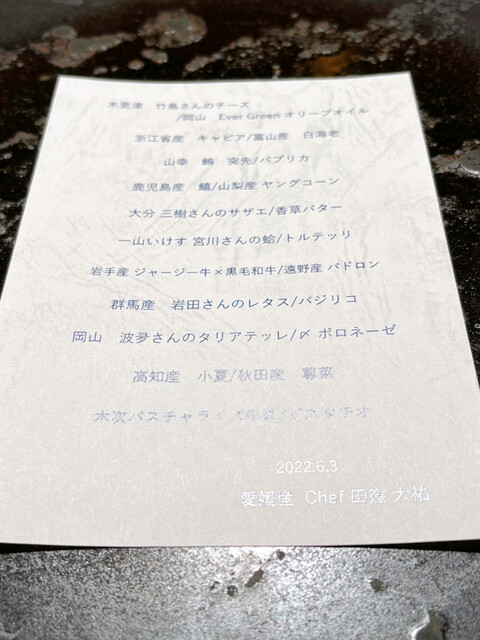 木更津 竹島さんのチーズ
/岡山 Ever Green オリーブオイル
浙江省産 キャビア/富山産 白海老
山幸 鮪 突先/パプリカ
鹿児島産 鱚/山梨産 ヤングコーン
大分 三樹さんのサザエ/香草バター
一山いけす 宮川さんの蛤/トルテッリ
岩手産 ジャージー牛×黒毛和牛/遠野産 パドロン
群馬産 岩田さんのレタス/バジリコ
岡山 波夛さんのタリアテッレ/〆 ボロネーゼ
高知産 小夏/秋田産 蓴菜
木次パスチャライズ牛乳/ピスタチオ
2022.6.3
愛媛産 Chef 田窪 大祐